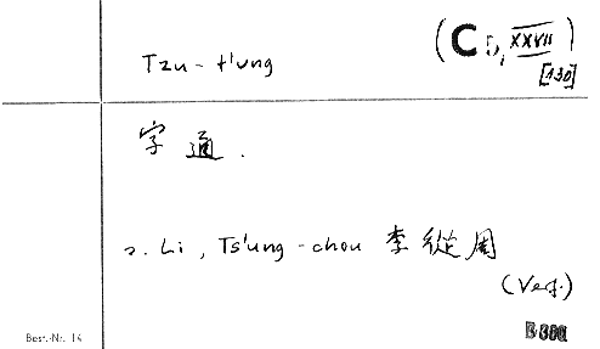 Tzu-t'ung
(C D, XXVII)
[130]
字通.
s. Li, Ts'ung-chou 李從周
(Verf.)
Best.-Nr. 14